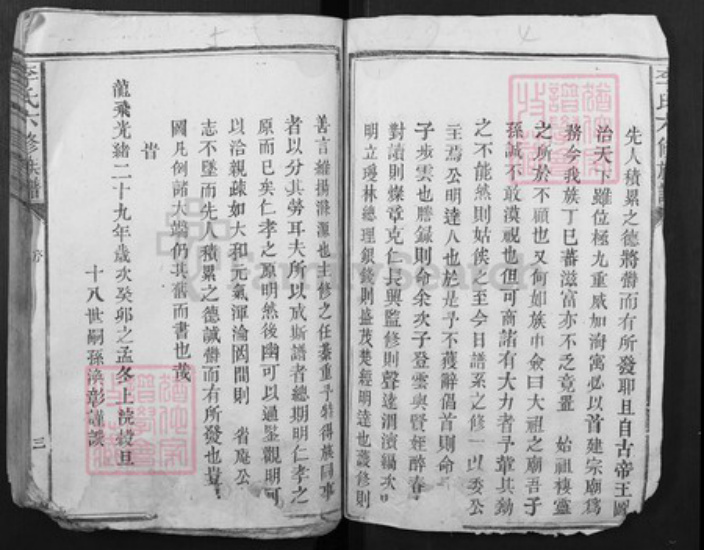 先人積累之德將鬱而有所發耶且自古帝王國
治天下雖位極九重威加海寓必以首建宗廟爲
務今我族丁巳蕃滋富亦不乏竟置 始祖棲靈
之所於不顧也又何如族中僉曰大祖之廟吾子
孫誠不敢漠視也但可商諸有大力者予輩其勷
之不能然則姑俟之至今日譜系之修一以委公
主焉公明達人也於是予不獲辭倡首則命
子步雲也謄録則命余次子登雲與賢姪醉春
對讀則燦章克仁長興監修則聲達泗濱編次
明立瓊林總理銀錢則盛茂楚經明達也叢修則
善言維揚滌源也主修之任綦重予特得族同事
者以分其勞耳夫所以成斯譜者總期明仁孝之
原而已矣仁孝之原明然後幽可以通鬯觀明可
以洽親疎如大和元氣渾淪罔間則 省庵公
志不墜而先人積累之德誠鬱而有所發也豈
國凡例諸大端仍其舊而書也哉
皆
龍飛光緒二十九年歲次癸卯之孟冬上浣穀旦
十八世嗣孫 彰謹譔
李氏六修族譜
三
李氏六修族譜
FamilySearch